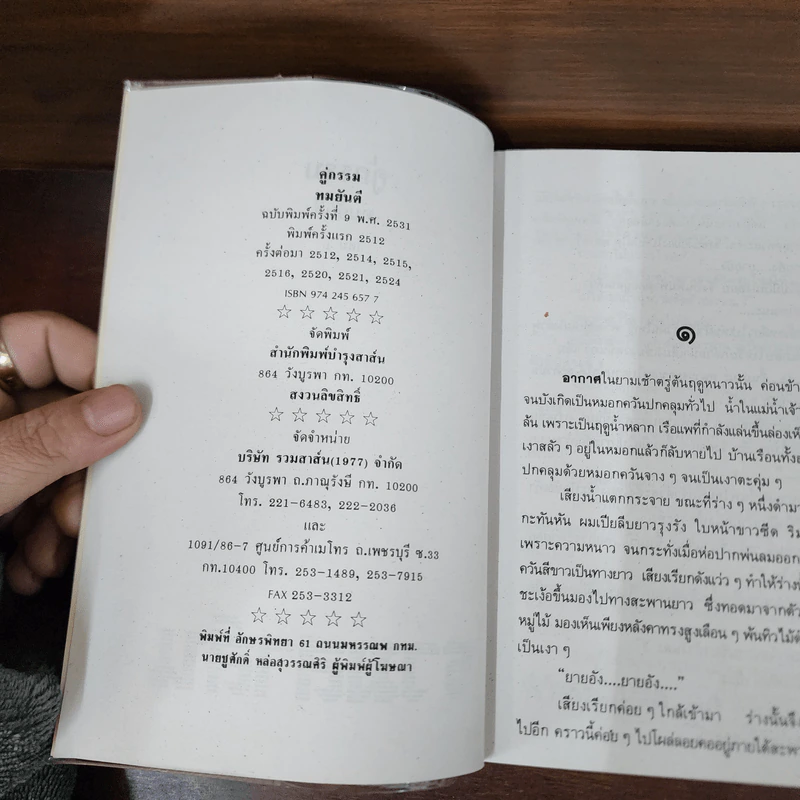 คู่กรรม
ทมยันตี
ฉบับพิมพ์ครั้งที่ 9 พ.ศ. 2531
พิมพ์ครั้งแรก 2512
ครั้งต่อมา 2512, 2514, 2515,
2516, 2520, 2521, 2524
ISBN 974 245 657 7
☆ ☆ ☆ ☆ ☆
จัดพิมพ์
สำนักพิมพ์บำรุงสาส์น
864 วังบูรพา กท. 10200
สงวนลิขสิทธิ์
☆ ☆ ☆ ☆ ☆
จัดจำหน่าย
บริษัท รวมสาส์น(1977) จำกัด
864 วังบูรพา ถ.ภาณุรังษี กท. 10200
โทร. 221-6483, 222-2036
และ
1091/86-7 ศูนย์การค้าเมโทร ถ.เพชรบุรี ซ.33
กท.10400 โทร. 253-1489, 253-7915
FAX 253-3312
☆ ☆ ☆ ☆ ☆
พิมพ์ที่ อักษรพิทยา 61 ถนนมหรรณพ กทม.
นายชูศักดิ์ หล่อสุวรรณศิริ ผู้พิมพ์ผู้โฆษณา
๑
อากาศในยามเช้าตรู่ต้นฤดูหนาวนั้น ค่อนข้า
จนบังเกิดเป็นหมอกควันปกคลุมทั่วไป น้ำในแม่น้ำเจ้า
ล้น เพราะเป็นฤดูน้ำหลาก เรือแพที่กำลังแล่นขึ้นล่องเห็
เงาสลัว ๆ อยู่ในหมอกแล้วก็ลับหายไป บ้านเรือนทั้ง
ปกคลุมด้วยหมอกควันจาง ๆ จนเป็นเงาตะคุ่ม ๆ
เสียงน้ำแตกกระจาย ขณะที่ร่าง ๆ หนึ่งดำมา
กะทันหัน ผมเปียลีบยาวรุงรัง ใบหน้าขาวซีด ริม
เพราะความหนาว จนกระทั่งเมื่อห่อปากพ่นลมออก
ควันสีขาวเป็นทางยาว เสียงเรียกดังแว่ว ๆ ทำให้ร่าง
ชะเง้อขึ้นมองไปทางสะพานยาว ซึ่งทอดมาจากตัว
หมู่ไม้ มองเห็นเพียงหลังคาทรงสูงเลือน ๆ พ้นทิวไม้
เป็นเงา ๆ
“ยายอัง....ยายอัง....”
เสียงเรียกค่อย ๆ ใกล้เข้ามา ร่างนั้นจึง
ไปอีก คราวนี้ค่อย ๆ ไปโผล่ลอยคออยู่ภายใต้สะพา